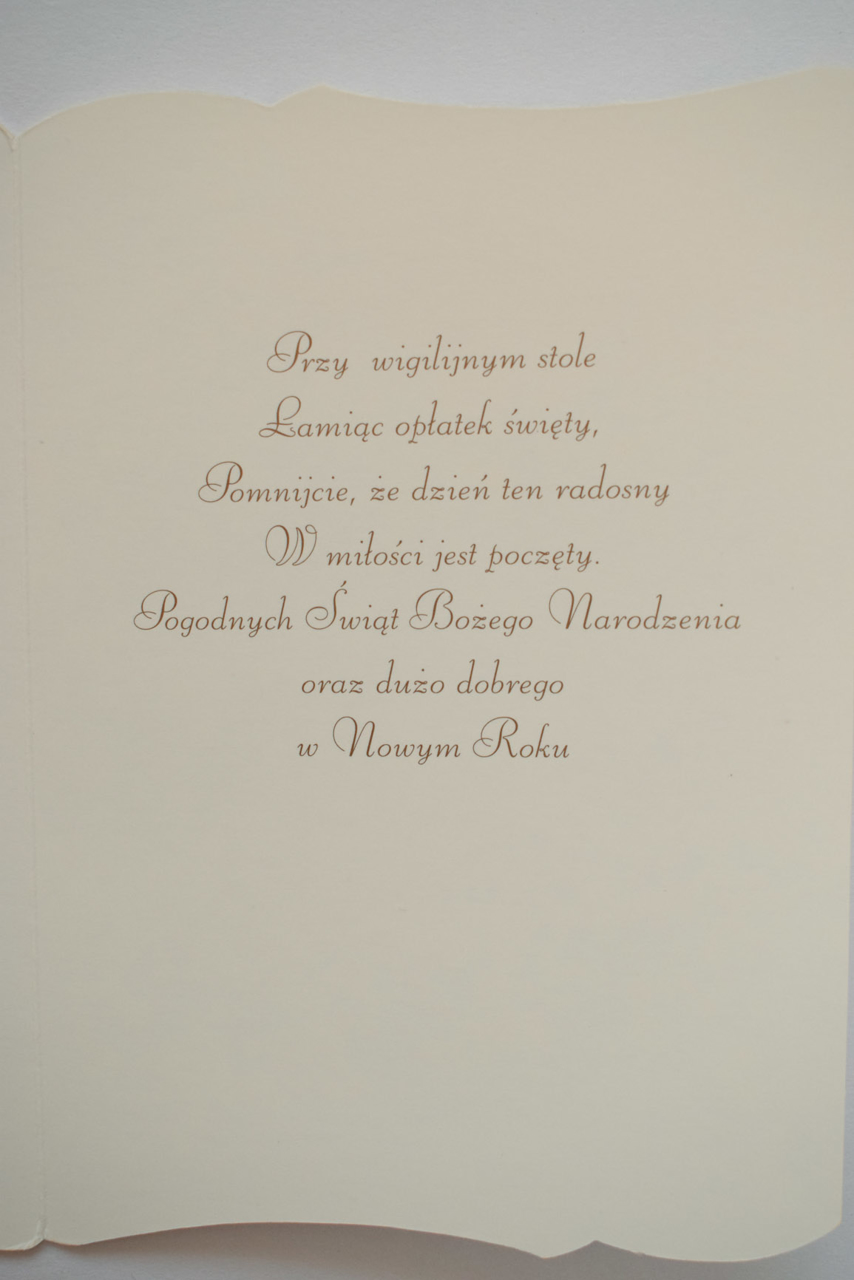 Przy wigilijnym stole
Łamiąc opłatek święty,
Pomnijcie, że dzień ten radosny
W miłości jest poczęty.
Pogodnych Świąt Bożego Narodzenia
oraz dużo dobrego
w Nowym Roku